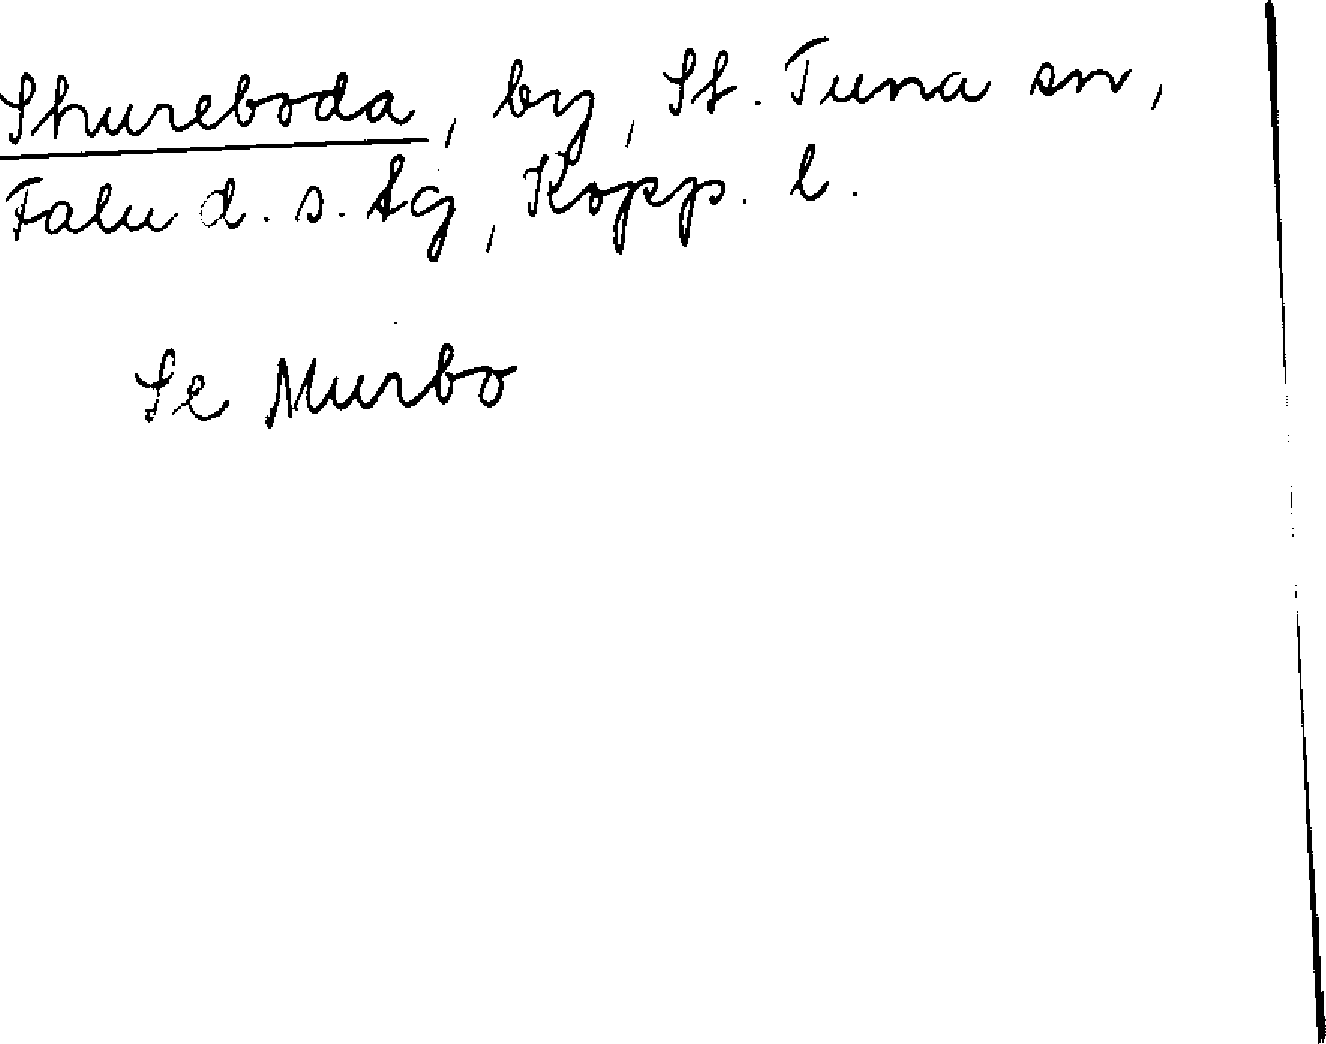 Skureboda, by, St. Tuna sn,
Falu d. s. tg, Kopp. l.
Se Murbo